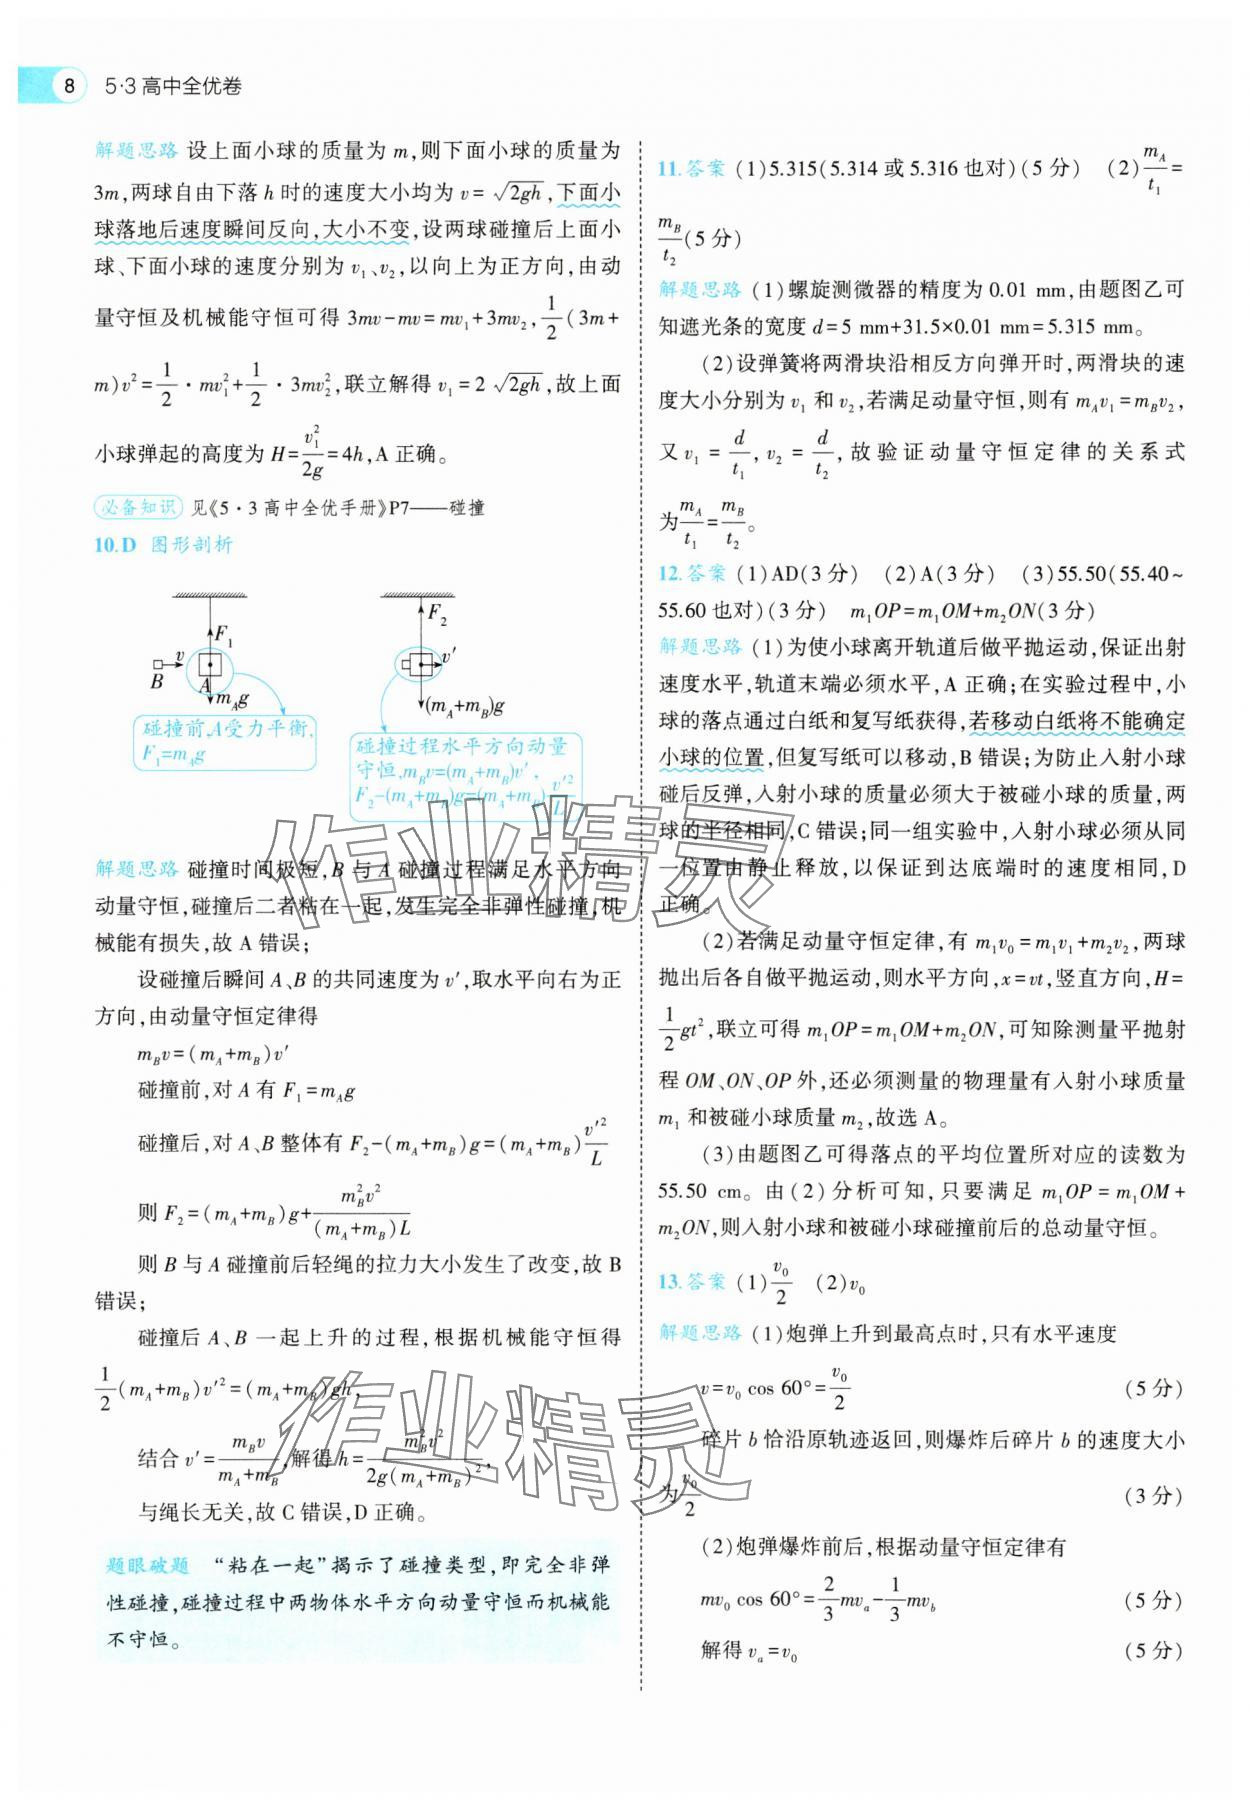 8 5·3高中全优卷
解题思路 设上面小球的质量为 m,则下面小球的质量为
3m,两球自由下落 h 时的速度大小均为 v=√2gh,下面小
球落地后速度瞬间反向,大小不变,设两球碰撞后上面小
球、下面小球的速度分别为 v₁、v₂,以向上为正方向,由动
量守恒及机械能守恒可得 3mv-mv=mv₁+3mv₂,1/2(3m+
m)v²=1/2·mv₁²+1/2·3mv₂²,联立解得 v₁=2√2gh,故上面
小球弹起的高度为 H=v₁²/2g=4h,A 正确。
必备知识 见《5·3高中全优手册》P7——碰撞
10.D 图形剖析
F₁
v
B
A
m_Ag
碰撞前,A受力平衡,
F₁=m_Ag
F₂
v′
(m_A+m_B)g
碰撞过程水平方向动量
守恒,m_Bv=(m_A+m_B)v′,
F₂-(m_A+m_B)g=(m_A+m_B)v′²/L
解题思路 碰撞时间极短,B 与 A 碰撞过程满足水平方向
动量守恒,碰撞后二者粘在一起,发生完全非弹性碰撞,机
械能有损失,故 A 错误;
设碰撞后瞬间 A、B 的共同速度为 v′,取水平向右为正
方向,由动量守恒定律得
m_Bv=(m_A+m_B)v′
碰撞前,对 A 有 F₁=m_Ag
碰撞后,对 A、B 整体有 F₂-(m_A+m_B)g=(m_A+m_B)v′²/L
则 F₂=(m_A+m_B)g+m_B²v²/(m_A+m_B)L
则 B 与 A 碰撞前后轻绳的拉力大小发生了改变,故 B
错误;
碰撞后 A、B 一起上升的过程,根据机械能守恒得
1/2(m_A+m_B)v′²=(m_A+m_B)gh,
结合 v′=m_Bv/(m_A+m_B),解得 h=m_B²v²/2g(m_A+m_B)²,
与绳长无关,故 C 错误,D 正确。
题眼破题 “粘在一起”揭示了碰撞类型,即完全非弹
性碰撞,碰撞过程中两物体水平方向动量守恒而机械能
不守恒。
11.答案 (1)5.315(5.314 或 5.316 也对)(5 分) (2)m_A/t₁=
m_B/t₂(5 分)
解题思路 (1)螺旋测微器的精度为 0.01 mm,由题图乙可
知遮光条的宽度 d=5 mm+31.5×0.01 mm=5.315 mm。
(2)设弹簧将两滑块沿相反方向弹开时,两滑块的速
度大小分别为 v₁ 和 v₂,若满足动量守恒,则有 m_Av₁=m_Bv₂,
又 v₁=d/t₁,v₂=d/t₂,故验证动量守恒定律的关系式
为m_A/t₁=m_B/t₂。
12.答案 (1)AD(3 分) (2)A(3 分) (3)55.50(55.40~
55.60 也对)(3 分) m₁OP=m₁OM+m₂ON(3 分)
解题思路 (1)为使小球离开轨道后做平抛运动,保证出射
速度水平,轨道末端必须水平,A 正确;在实验过程中,小
球的落点通过白纸和复写纸获得,若移动白纸将不能确定
小球的位置,但复写纸可以移动,B 错误;为防止入射小球
碰后反弹,入射小球的质量必须大于被碰小球的质量,两
球的半径相同,C 错误;同一组实验中,入射小球必须从同
一位置由静止释放,以保证到达底端时的速度相同,D
正确。
(2)若满足动量守恒定律,有 m₁v₀=m₁v₁+m₂v₂,两球
抛出后各自做平抛运动,则水平方向,x=vt,竖直方向,H=
1/2gt²,联立可得 m₁OP=m₁OM+m₂ON,可知除测量平抛射
程 OM、ON、OP 外,还必须测量的物理量有入射小球质量
m₁ 和被碰小球质量 m₂,故选 A。
(3)由题图乙可得落点的平均位置所对应的读数为
55.50 cm。由(2)分析可知,只要满足 m₁OP=m₁OM+
m₂ON,则入射小球和被碰小球碰撞前后的总动量守恒。
13.答案 (1)v₀/2 (2)v₀
解题思路 (1)炮弹上升到最高点时,只有水平速度
v=v₀ cos 60°=v₀/2 (5 分)
碎片 b 恰沿原轨迹返回,则爆炸后碎片 b 的速度大小
为v₀/2 (3 分)
(2)炮弹爆炸前后,根据动量守恒定律有
mv₀ cos 60°=2/3mv_a-1/3mv_b (5 分)
解得 v_a=v₀ (5 分)
作业精灵
作业精灵